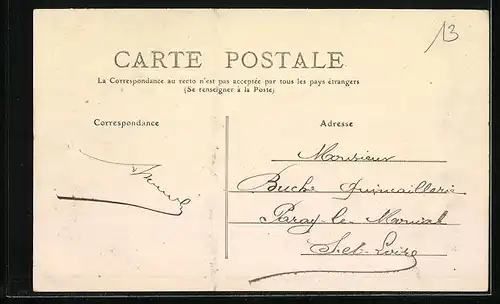 13
CARTE POSTALE
La Correspondance au recto n'est pas acceptée par tous les pays étrangers
(Se renseigner à la Poste)
Correspondance
Adresse
Monsieur
Buch Quincaillerie
Paray-le-Monial
S.et-Loire